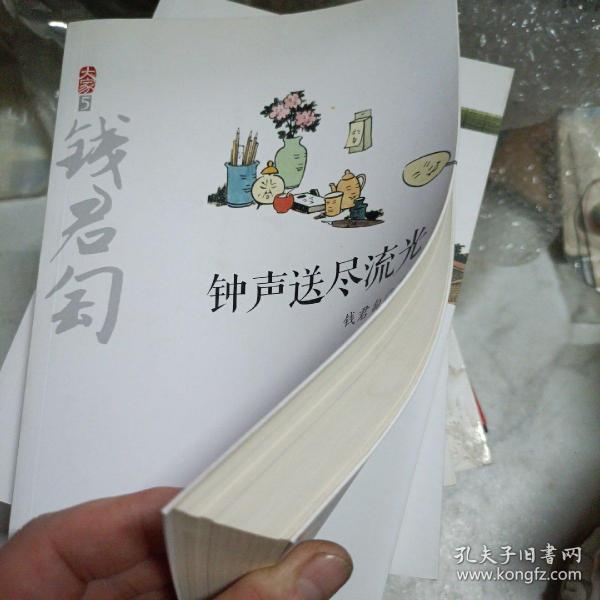 大家
5
钱君匋
钟声送尽流光
钱君
孔夫子旧书网
www.kongfz.com